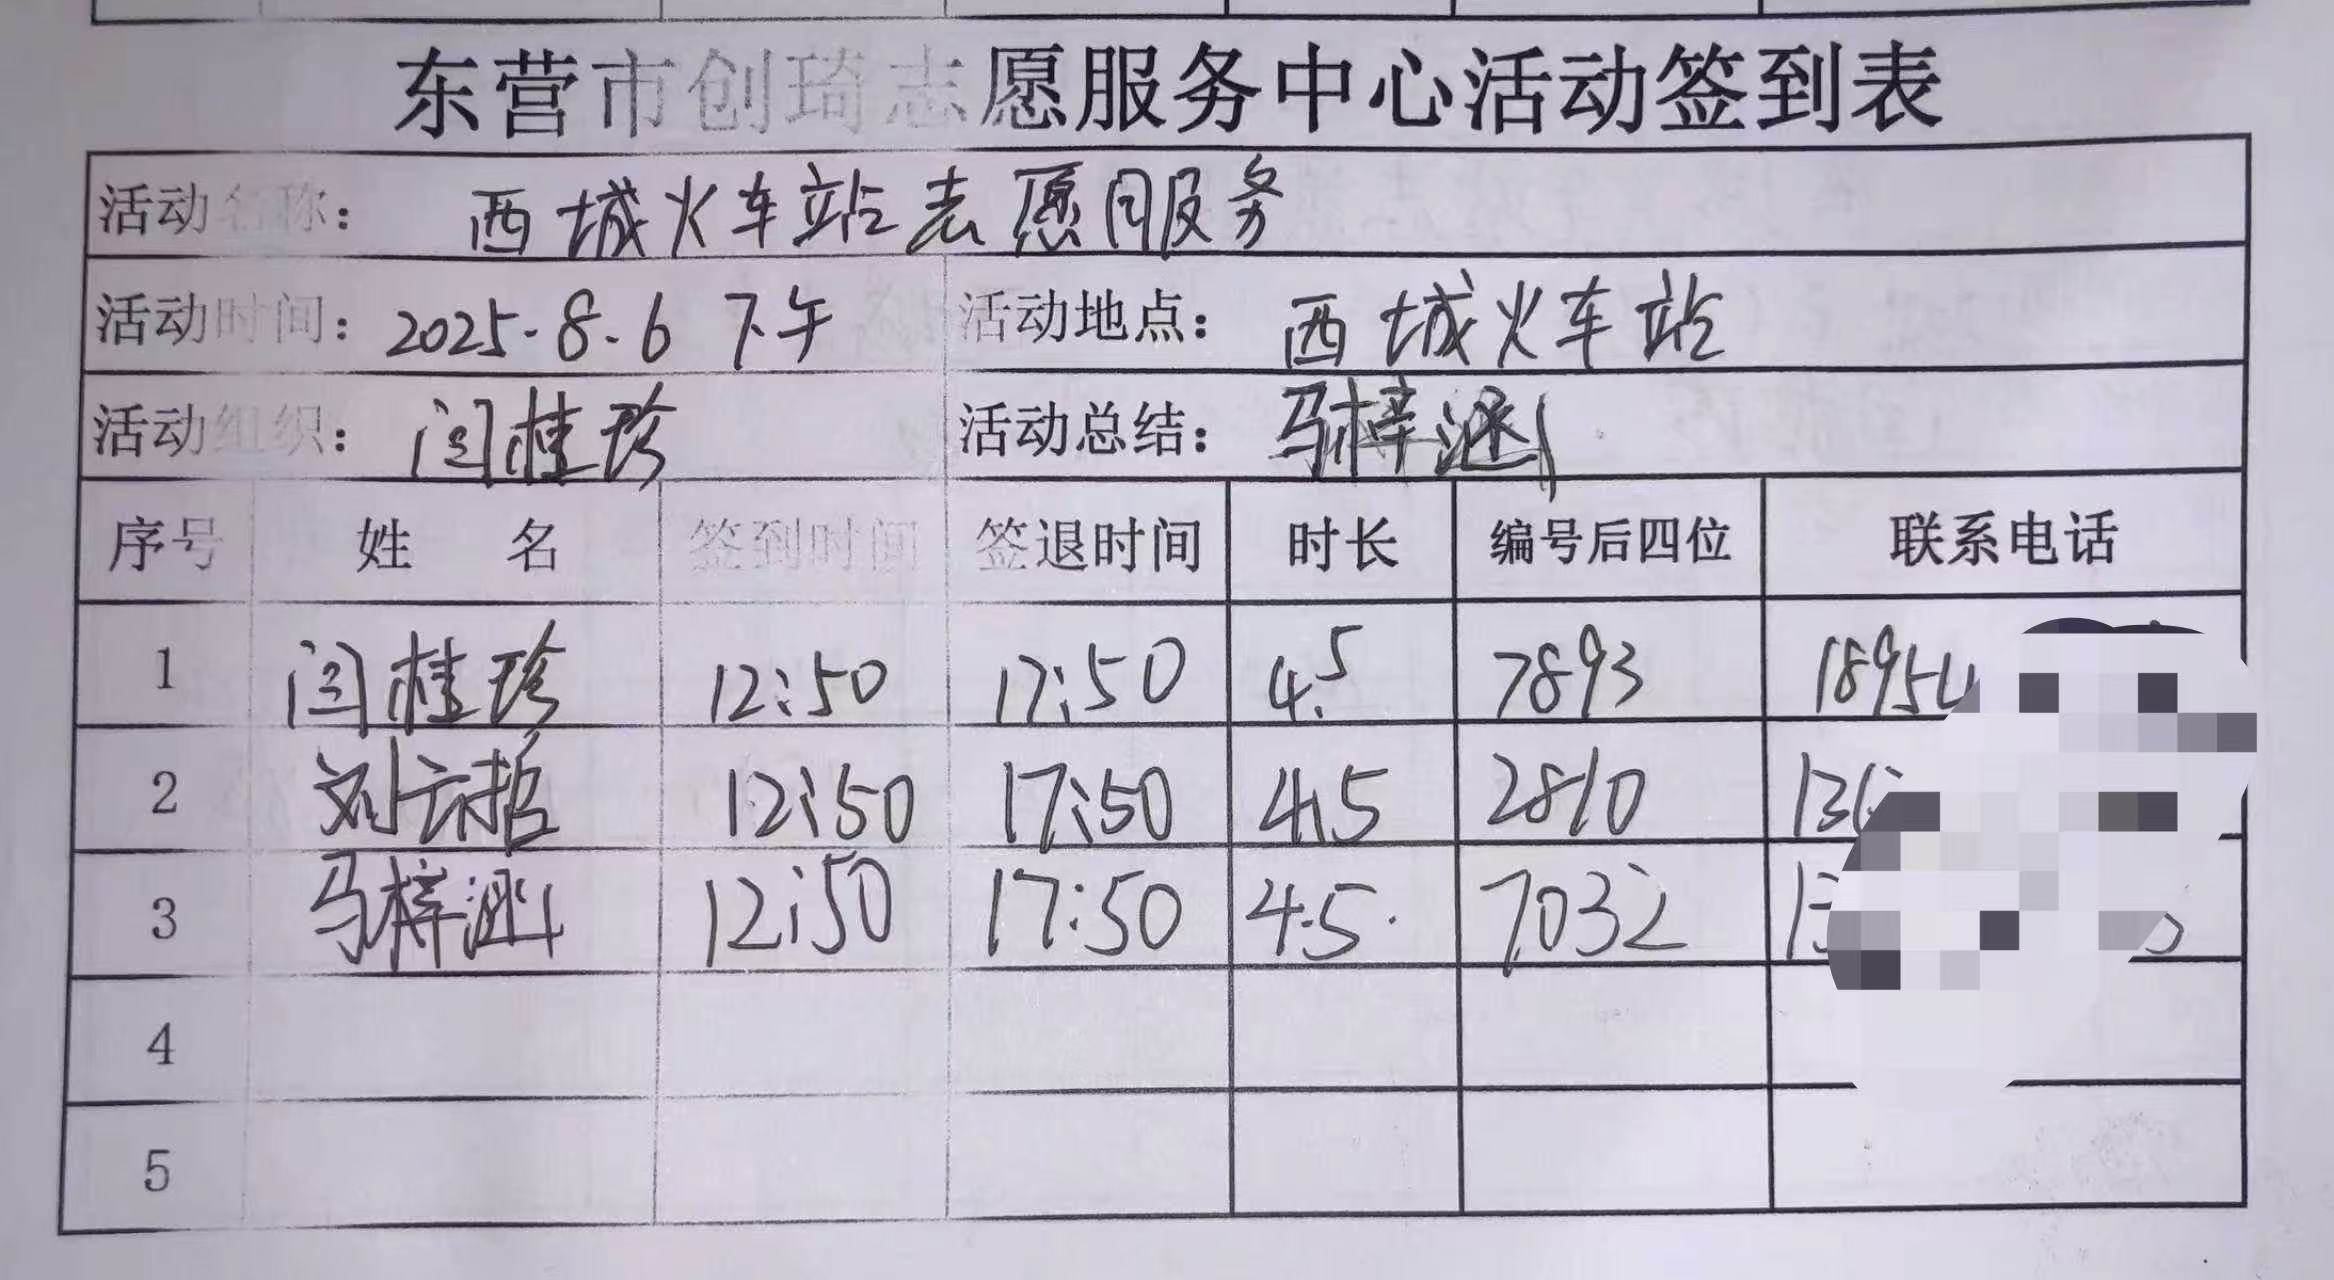 东营市创琦志愿服务中心活动签到表
活动名称： 西城火车站志愿服务
活动时间： 2025.8.6 下午 活动地点： 西城火车站
活动组织： 闫桂珍 活动总结： 马梓涵
序号 姓名 签到时间 签退时间 时长 编号后四位 联系电话
1 闫桂珍 12:50 17:50 4.5 7893 18954
2 刘云哲 12:50 17:50 4.5 2810 136
3 马梓涵 12:50 17:50 4.5 7032 13
4
5